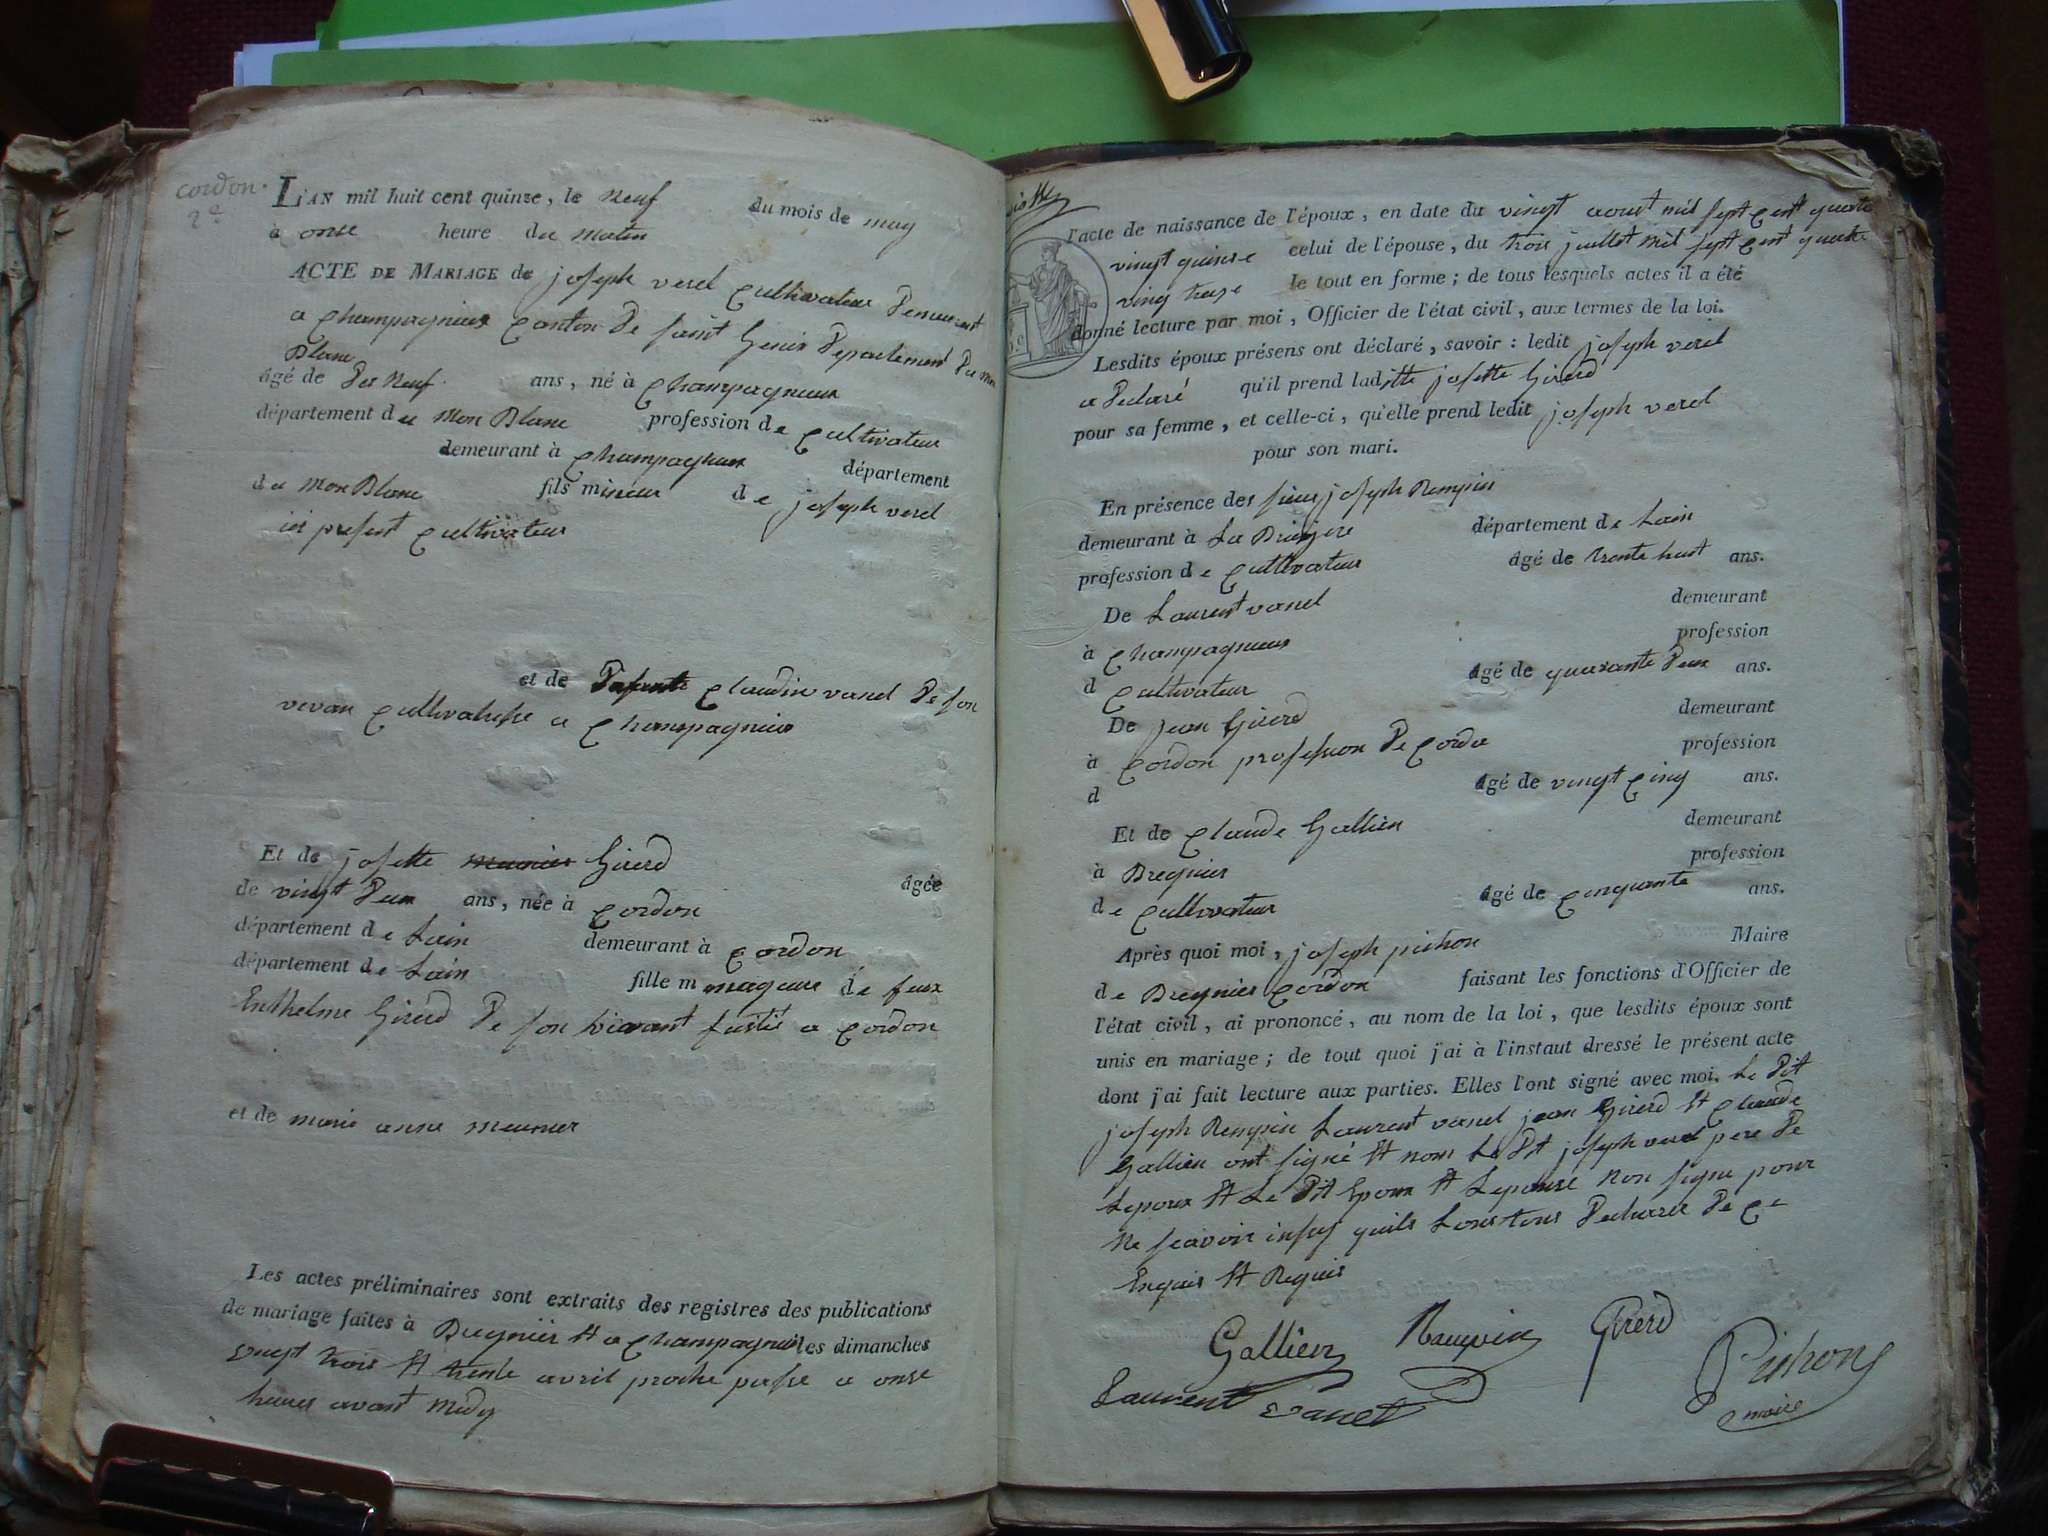 cordon.
2e
L'AN mil huit cent quinze, le neuf du mois de may
à onse heure du matin
ACTE DE MARIAGE de joseph verel cultivateur demeurant
a champagnieux canton de saint Genix departement du mon
Blanc
âgé de dix neuf ans, né à champagnieux
département du mon Blanc profession de cultivateur
demeurant à champagnieux département
du mon Blanc fils mineur de joseph verel
ici present cultivateur
et de claudin vanel de son
vivan cultivatrisse a champagnieux
Et de josette meunier Girerd âgée
de vingt deux ans, née à cordon
département de Lain demeurant à cordon
département de Lain fille m mageure de feux
Enthelme Girerd de son vivant a cordon
et de marie anne meunier
Les actes préliminaires sont extraits des registres des publications
de mariage faites à Bregnier Et a champagnieux les dimanches
vingt trois Et trente avril proche passe a onse
heures avant midy
l'acte de naissance de l'époux, en date du vingt aoust mil sept cent quatre
vingt quinse celui de l'épouse, du trois juillet mil sept cent quatre
ving treze le tout en forme; de tous lesquels actes il a été
donné lecture par moi, Officier de l'état civil, aux termes de la loi.
Lesdits époux présens ont déclaré, savoir: ledit joseph verel
a declaré qu'il prend laditte josette Girerd
pour sa femme, et celle-ci, qu'elle prend ledit joseph verel
pour son mari.
En présence des sieur joseph Rempin
demeurant à La Bruyere département de Lain
profession de cultivateur âgé de trente huit ans.
De Laurent vanel demeurant
à champagnieux profession
d cultivateur âgé de quarante deux ans.
De jean Girerd demeurant
à cordon profession de cordo profession
d âgé de vingt cinq ans.
Et de claude Gallien demeurant
à Bregnier profession
de cultivateur âgé de cinquante ans.
Après quoi moi, joseph pichon Maire
de Bregnier cordon faisant les fonctions d'Officier de
l'état civil, ai prononcé, au nom de la loi, que lesdits époux sont
unis en mariage; de tout quoi j'ai à l'instaut dressé le présent acte
dont j'ai fait lecture aux parties. Elles l'ont signé avec moi. Le dit
joseph Rempin Laurent vanel jean Girerd Et claude
Gallien ont signé Et nom Le dit joseph verel pere de
Lepoux Et Le dit Epoux Et Lepouse non signe pour
ne scavoir quils Lons tous declarer de ce
Enquis Et Requis
Gallien Girerd Pichon
Laurent vanel maire